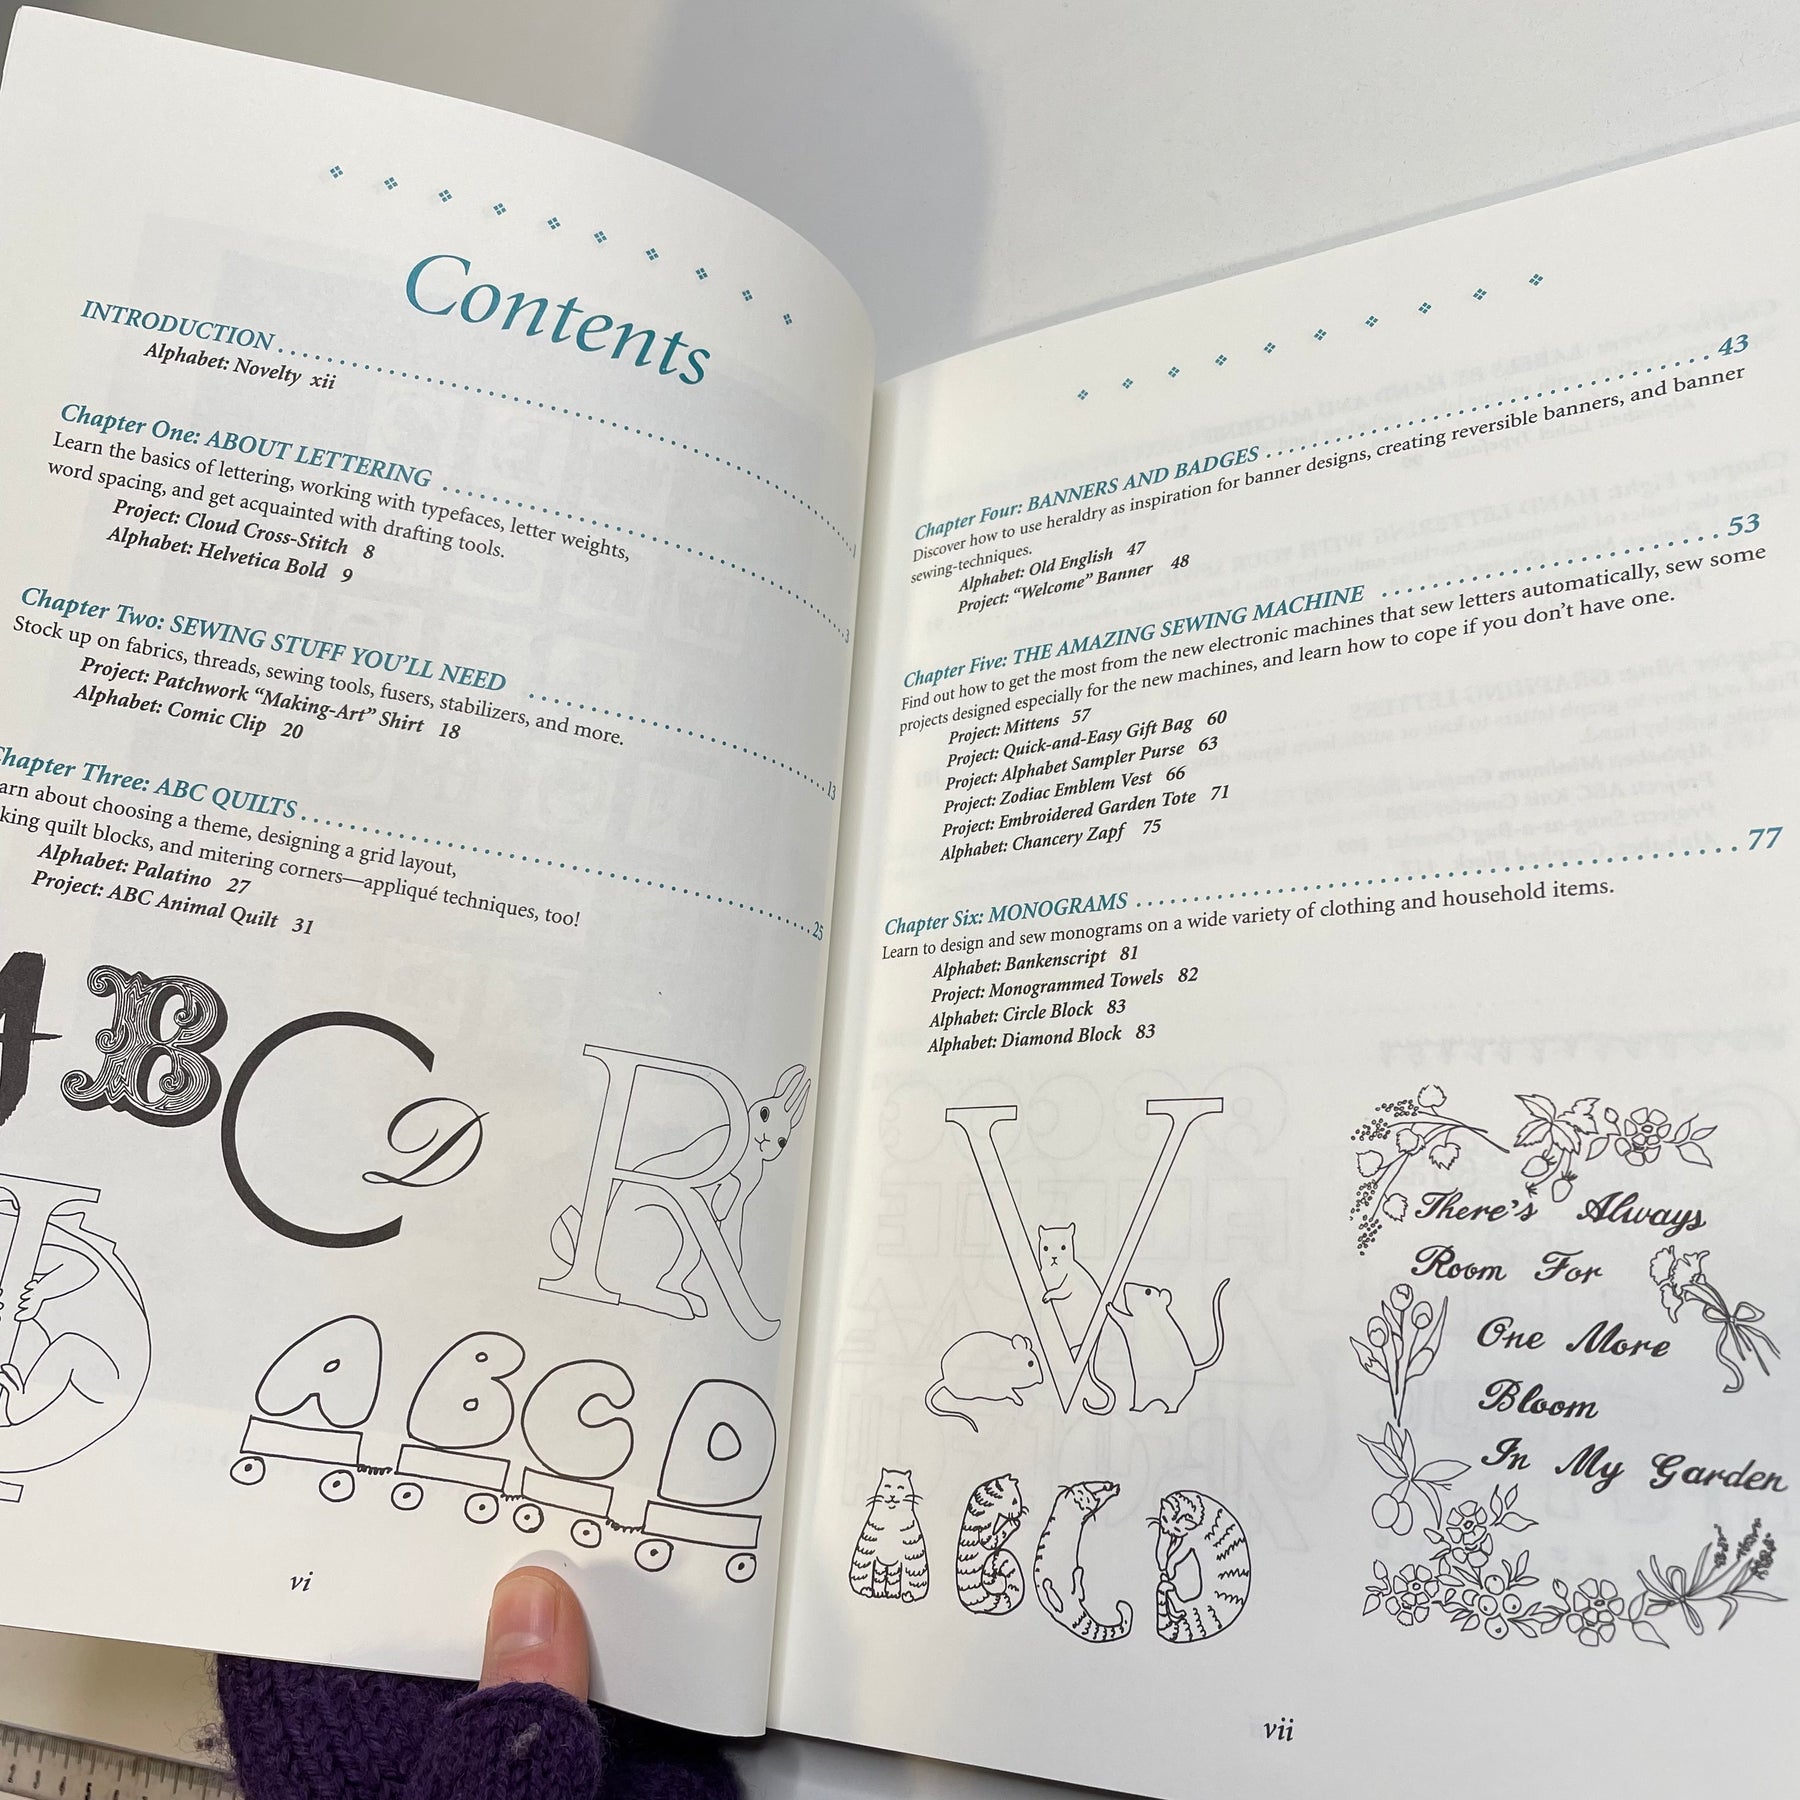 Contents
INTRODUCTION 1
Alphabet: Novelty xii
Chapter One: ABOUT LETTERING 3
Learn the basics of lettering, working with typefaces, letter weights,
word spacing, and get acquainted with drafting tools.
Project: Cloud Cross-Stitch 8
Alphabet: Helvetica Bold 9
Chapter Two: SEWING STUFF YOU'LL NEED 13
Stock up on fabrics, threads, sewing tools, fusers, stabilizers, and more.
Project: Patchwork “Making-Art” Shirt 18
Alphabet: Comic Clip 20
Chapter Three: ABC QUILTS 25
arn about choosing a theme, designing a grid layout,
king quilt blocks, and mitering corners—appliqué techniques, too!
Alphabet: Palatino 27
Project: ABC Animal Quilt 31
A B C D
R
A B C D
vi
Chapter Four: BANNERS AND BADGES 43
Discover how to use heraldry as inspiration for banner designs, creating reversible banners, and banner
sewing-techniques.
Alphabet: Old English 47
Project: “Welcome” Banner 48
Chapter Five: THE AMAZING SEWING MACHINE 53
Find out how to get the most from the new electronic machines that sew letters automatically, sew some
projects designed especially for the new machines, and learn how to cope if you don't have one.
Project: Mittens 57
Project: Quick-and-Easy Gift Bag 60
Project: Alphabet Sampler Purse 63
Project: Zodiac Emblem Vest 66
Project: Embroidered Garden Tote 71
Alphabet: Chancery Zapf 75
Chapter Six: MONOGRAMS 77
Learn to design and sew monograms on a wide variety of clothing and household items.
Alphabet: Bankenscript 81
Project: Monogrammed Towels 82
Alphabet: Circle Block 83
Alphabet: Diamond Block 83
V
A B C D
There's Always
Room For
One More
Bloom
In My Garden
vii